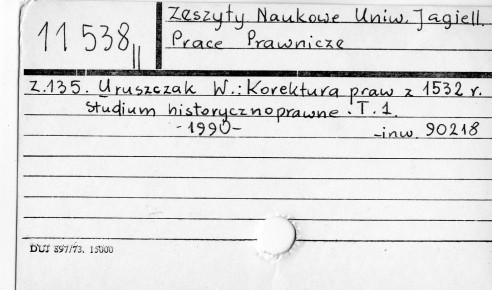 11 538 II
Zeszyty Naukowe Uniw. Jagiell.
Prace Prawnicze
Z.135. Uruszczak W.: Korektura praw z 1532 r.
Studium historycznoprawne. T. 1.
-1990-
-inw. 90218
DUJ 897/73. 15000